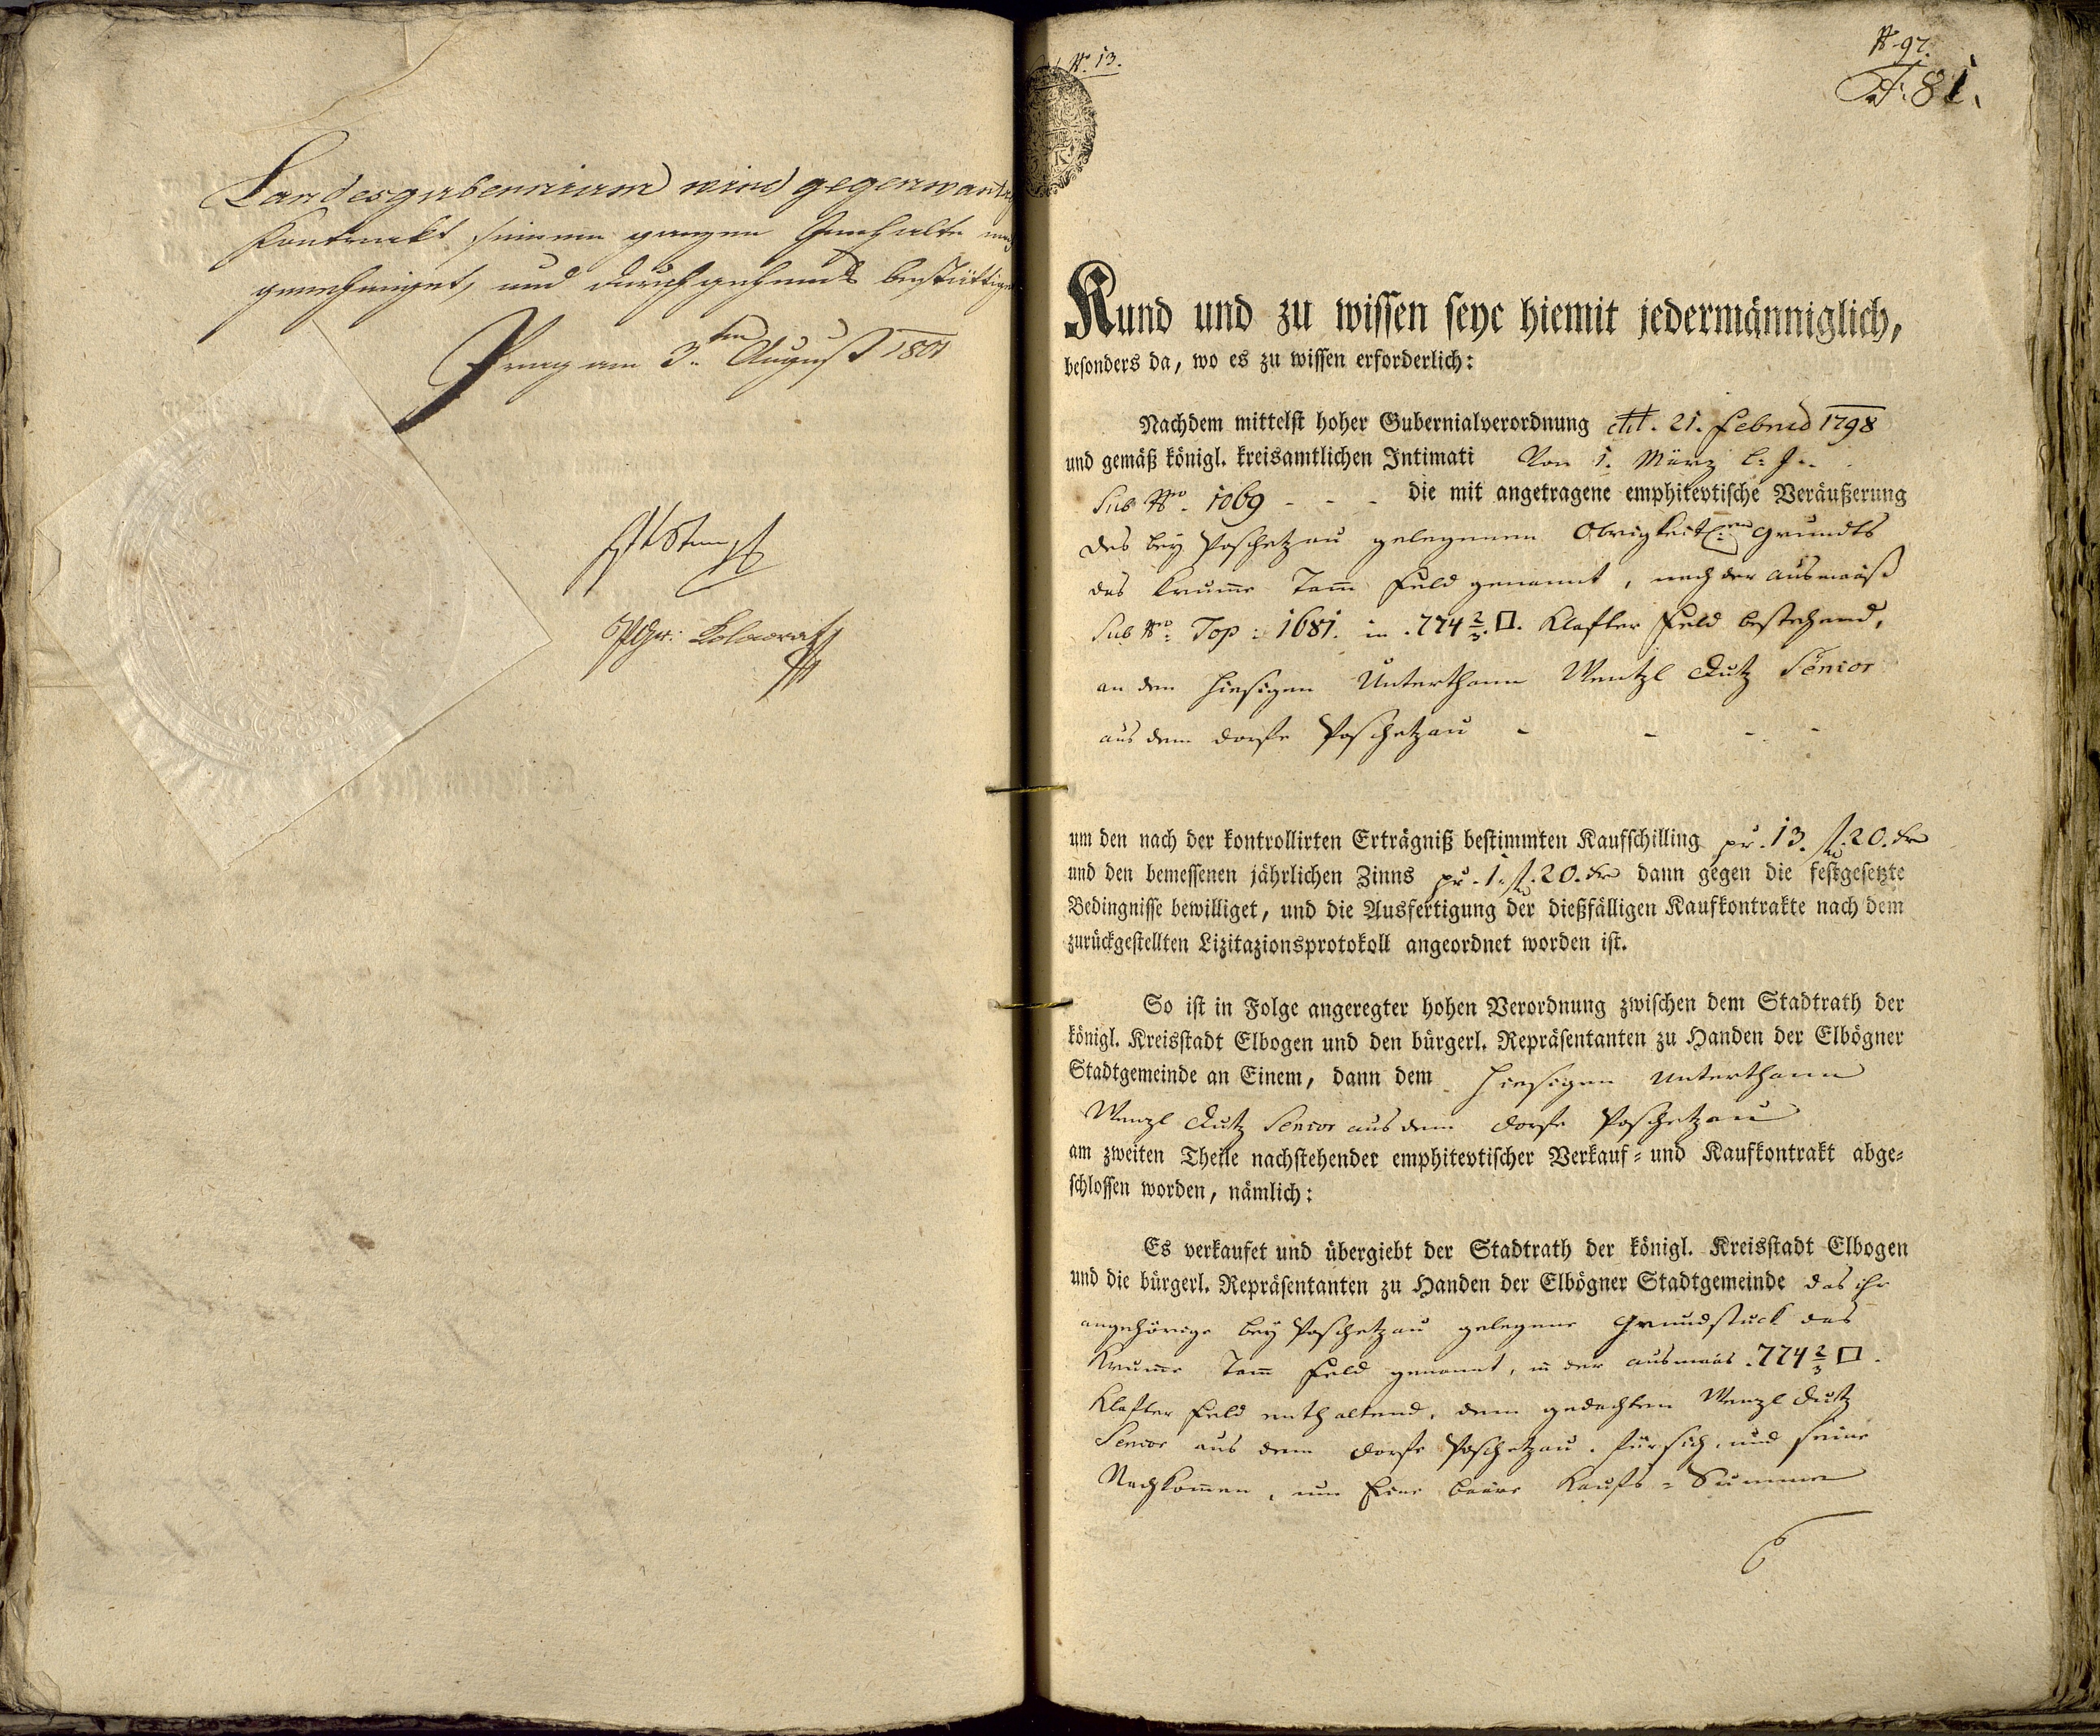 Landesgubernium wird gegenwärtig
Kontrakt seinem ganzen Innhalte nach
genehmiget, und durchgehends bestättiget
Prag am 3.ten August 1801
Nro. 13.
N. 97.
81.
Kund und zu wissen seye hiemit jedermänniglich,
besonders da, wo es zu wissen erforderlich:
Nachdem mittelst hoher Gubernialverordnung ddt. 21. Februar 1798
und gemäß königl. kreisamtlichen Intimati Von 1. März l: J:.
Sub Nro. 1069 - - - die mit angetragene emphitevtische Veräußerung
des bey Poschetzau gelegenen Obrigkeitl:en Grundts
das krum̄e Tam̄ Feld genannt, nach der ausmaaß
Sub Nro: Top: 1681. in .774 2/3. □. Klafter Feld bestehend,
an den hiesigen Unterthann Wentzl Lutz Senior
aus dem Dorfe Poschetzau - - - -
um den nach der kontrollirten Erträgniß bestimmten Kaufschilling pr. 13. fl. 20. kr
und den bemessenen jährlichen Zinns pr. 1. fl. 20. kr dann gegen die festgesetzte
Bedingnisse bewilliget, und die Ausfertigung der dießfälligen Kaufkontrakte nach dem
zurückgestellten Lizitazionsprotokoll angeordnet worden ist.
So ist in Folge angeregter hohen Verordnung zwischen dem Stadtrath der
königl. Kreisstadt Elbogen und den bürgerl. Repräsentanten zu Handen der Elbögner
Stadtgemeinde an Einem, dann dem hiesigen Unterthann
Wenzl Lutz Senior aus dem Dorfe Poschetzau
am zweiten Theile nachstehender emphitevtischer Verkauf- und Kaufkontrakt abge-
schlossen worden, nämlich:
Es verkaufet und übergiebt der Stadtrath der königl. Kreisstadt Elbogen
und die bürgerl. Repräsentanten zu Handen der Elbögner Stadtgemeinde das ihr
angehörige bey Poschetzau gelegene Grundstuck das
Krum̄e Tam̄ Feld genannt, in der ausmaas .774 2/3 □.
Klafter Feld enthaltend, dem gedachten Wenzl Lutz
Senior aus dem Dorfe Poschetzau. für sich, und seine
Nachkom̄en, um Eine baare Kaufs-Summe